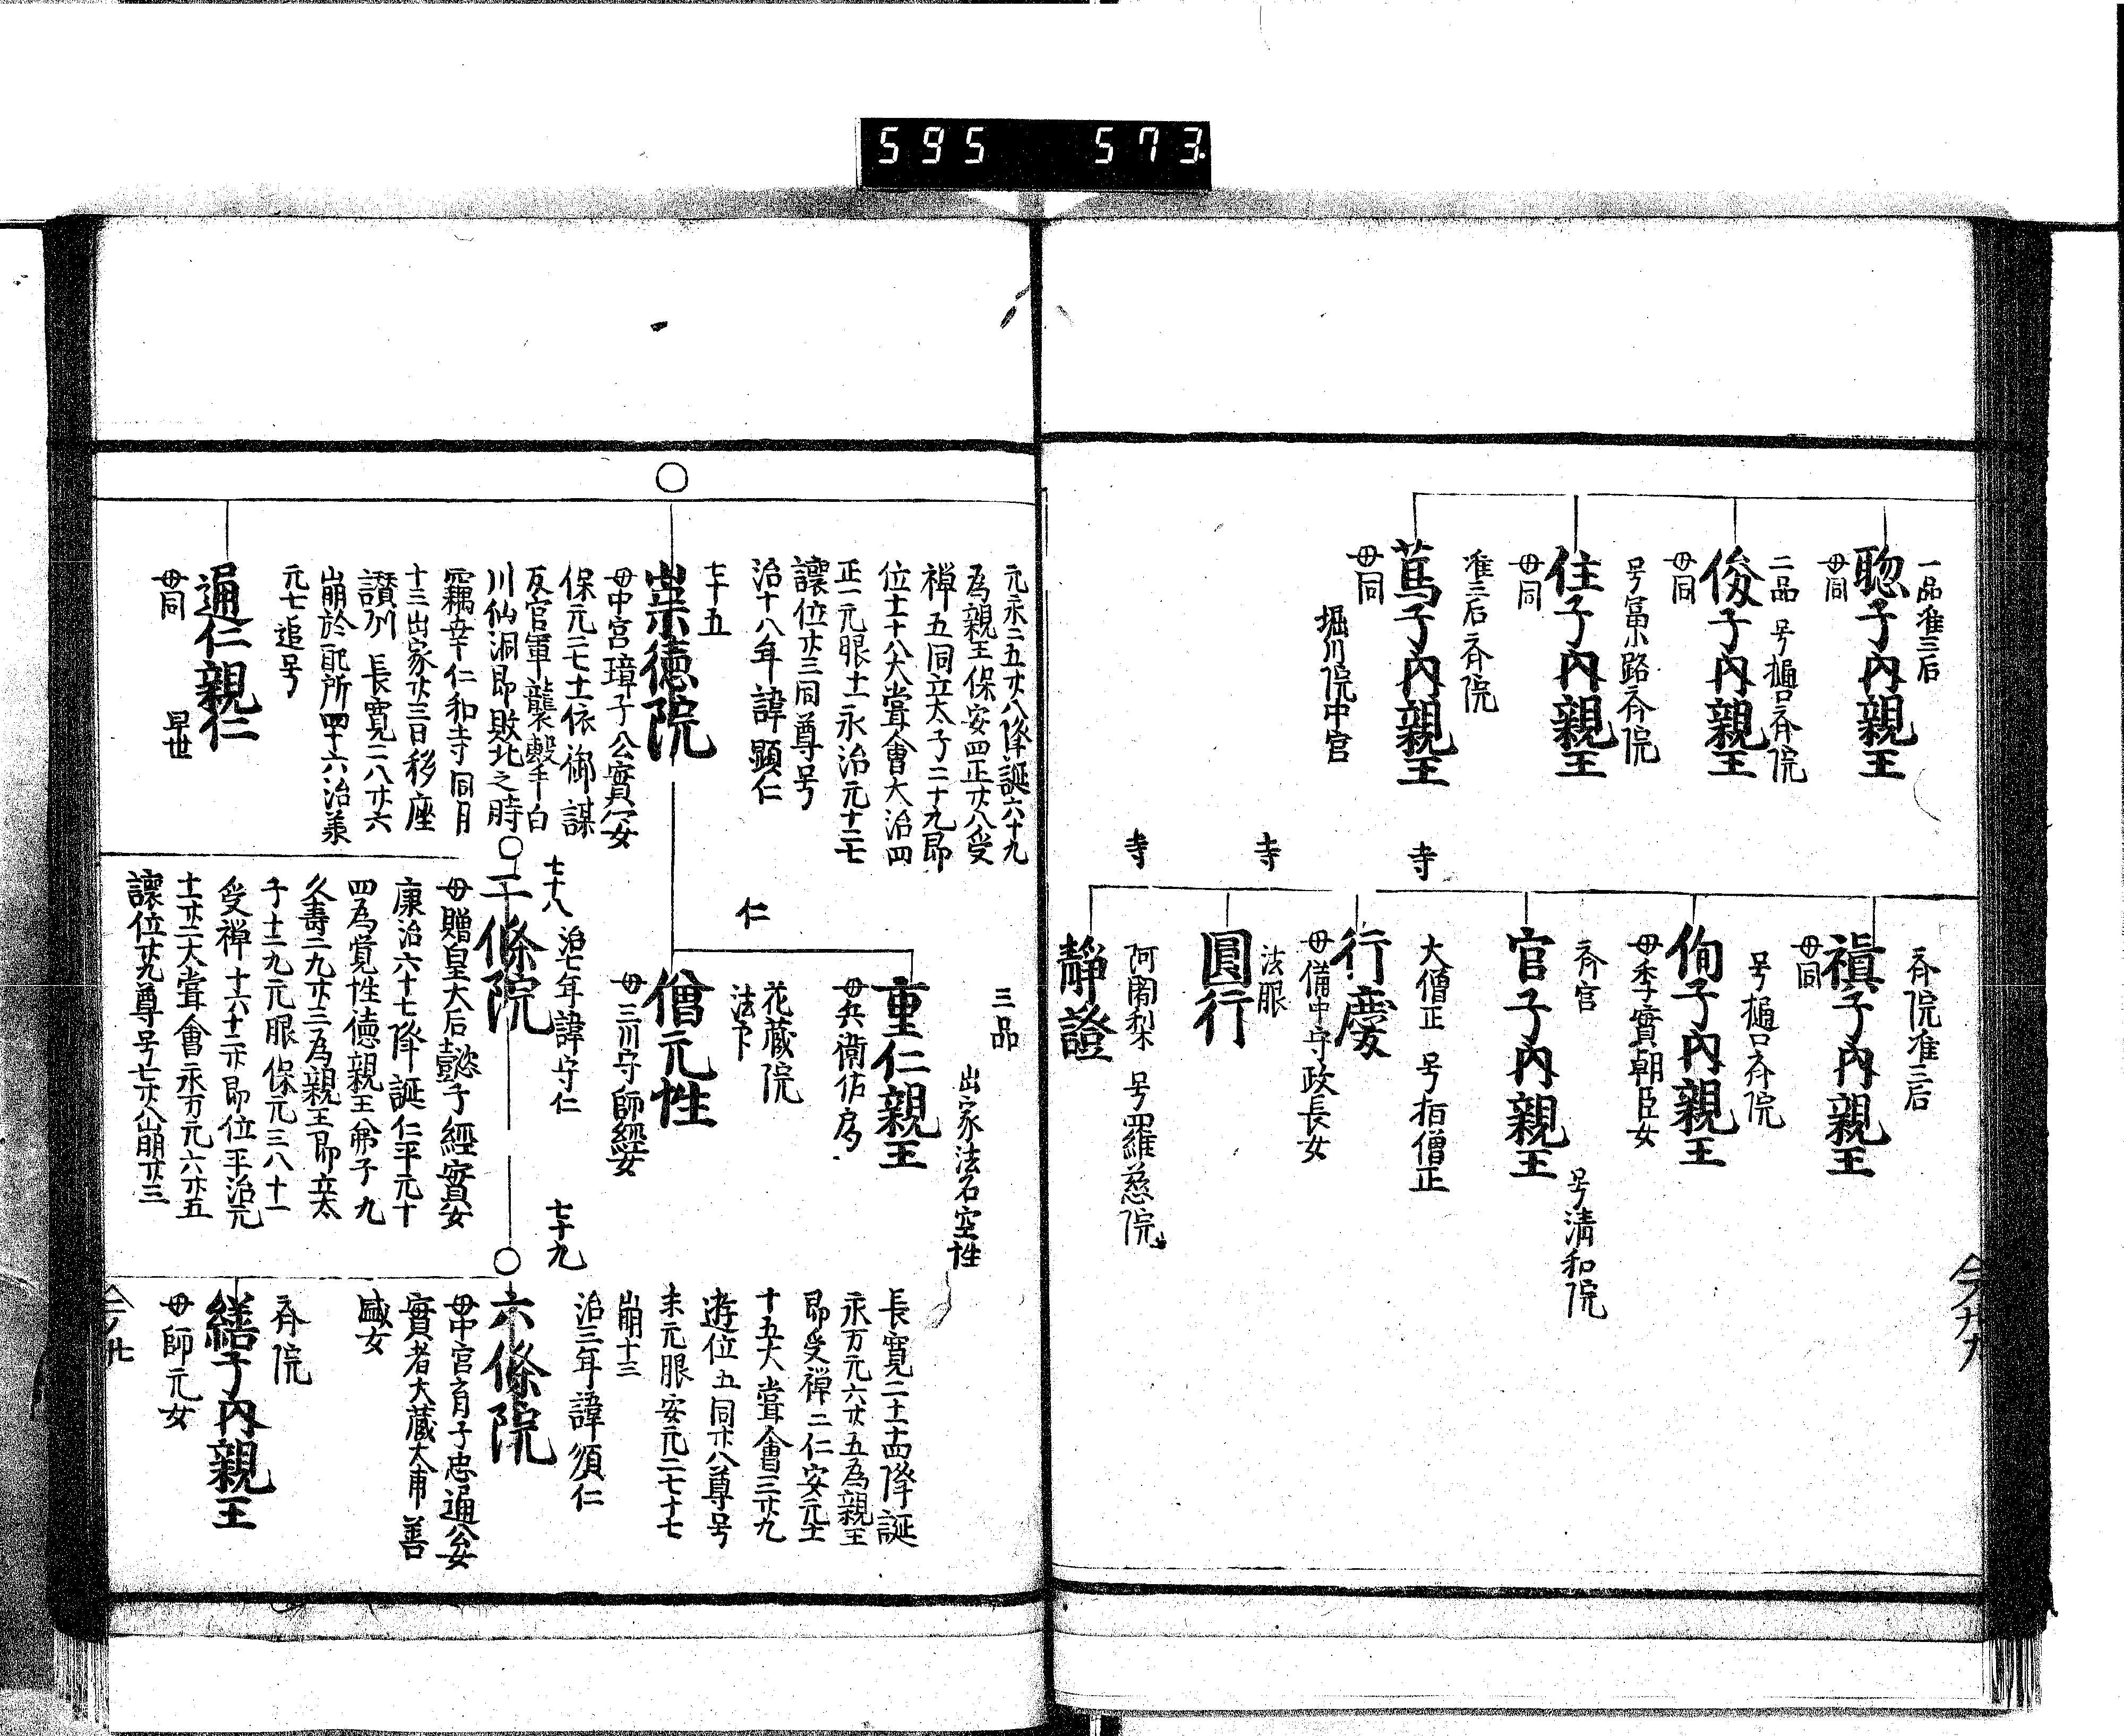 595 573.
一品准三后
聡子内親王
母同
二品 号樋口斉院
俊子内親王
母同
号冨小路斉院
佳子内親王
母同
准三后 斉院
篤子内親王
母同
堀川院中宮
斉院准三后
禛子内親王
母同
号樋口斉院
侚子内親王
母季實朝臣女
斉宮
号清和院
官子内親王
寺
大僧正 号栢僧正
行慶
母備中守政長女
寺
法眼
圓行
寺
阿闍梨 号羅惹院
静證
今九九
元永二五廿八降誕六十九
為親王保安四正廿八受
禅五同立太子二十九即
位十一十八大甞會大治四
正一元服十一永治元十二七
讓位廿三同尊号
治十八年諱顕仁
七十五
崇徳院
母中宮璋子公實公女
保元二七十一依御謀
反官軍襲撃于白
川仙洞即敗北之時
竊幸仁和寺同月
十三出家廿三日移座
讃州 長寛二八廿六
崩於配所四十六治兼
元七追号
通仁親仁
母同 早世
三品
出家法名空性
重仁親王
母兵衛佐房
仁
花蔵院
法下
僧元性
母三川守師經女
七十八
治七年諱守仁
二條院
母贈皇太后懿子經實女
康治六十七降誕仁平元十
四為覚性徳親王弟子九
久壽二九廿三為親王即立太
子十二九元服保元三八十一
受禅十六十二廿即位平治元
十一廿二大甞會永万元六廿五
讓位廿九尊号七廿八崩廿三
長寛二十一十四降誕
永万元六廿五為親王
即受禅二仁安元十一
十五大甞會三廿九
遊位五同廿八尊号
未元服安元二七十七
崩十三
治三年諱順仁
七十九
六條院
母中宮育子忠通公女
實者大蔵大甫善
盛女
斉院
繕子内親王
母師元女
今九廿